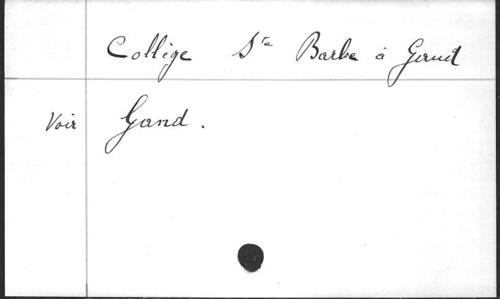 Collège Ste Barbe à Gand
Voir Gand.